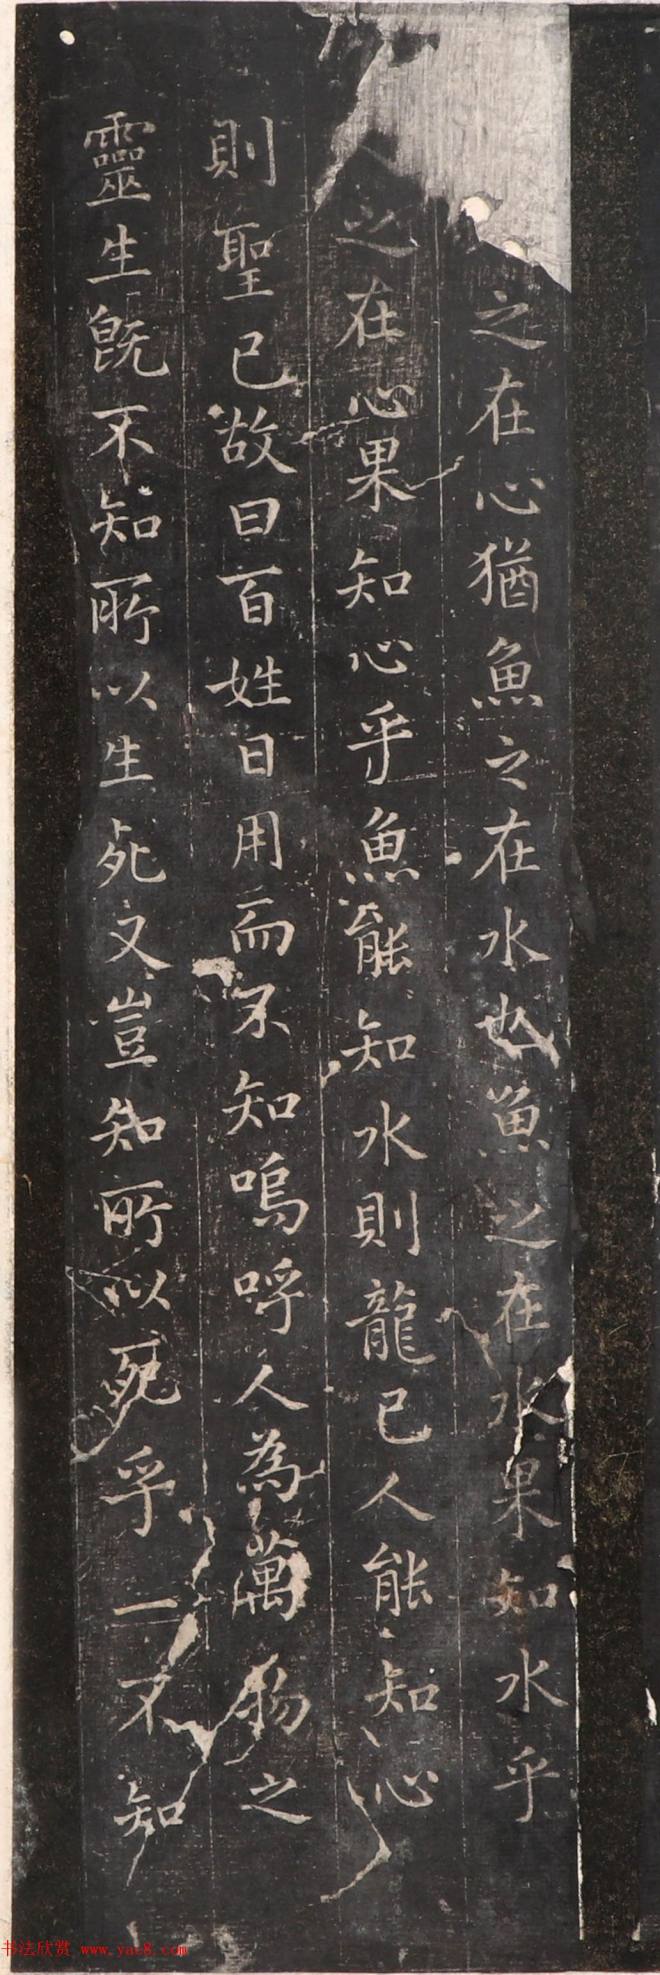 之在心猶魚之在水也魚之在水果知水乎
之在心果知心乎魚能知水則龍已人能知心
則聖已故曰百姓日用而不知嗚呼人為萬物之
靈生旣不知所以生死又豈知所以死乎一不知
书法欣赏 www.yac8.com